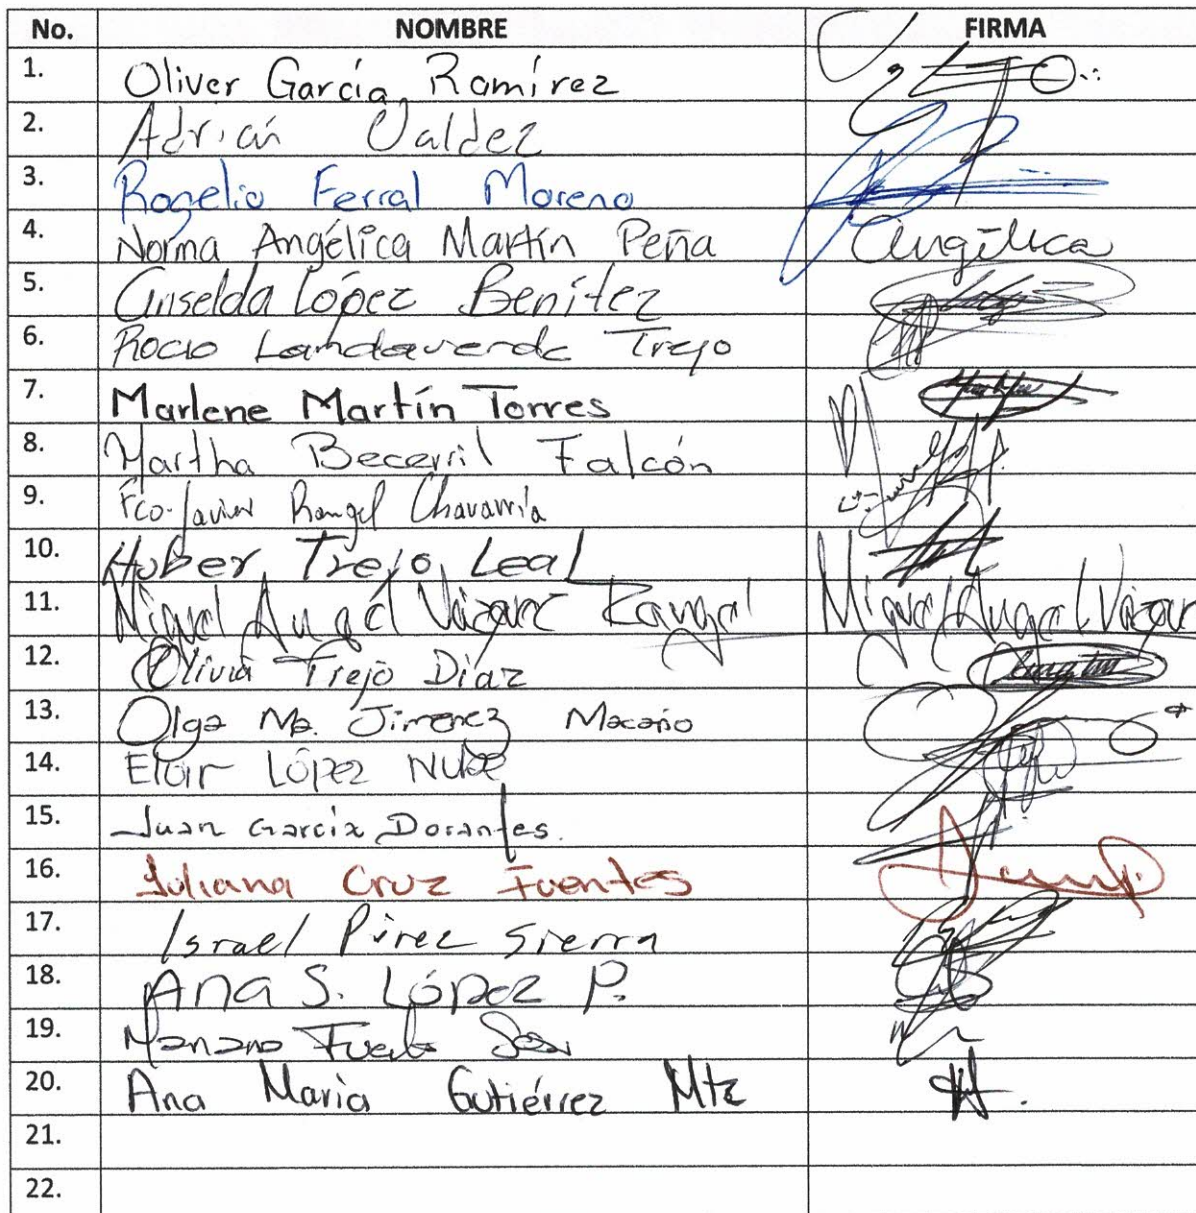 No. NOMBRE FIRMA
1. Oliver García Ramírez
2. Adrián Valdez
3. Rogelio Ferral Moreno
4. Norma Angélica Martín Peña Angélica
5. Griselda López Benítez
6. Rocio Landaverde Trejo
7. Marlene Martín Torres
8. Martha Becerril Falcón
9. Fco. Javier Rangel Chavarría
10. Huber Trejo Leal
11. Miguel Angél Vázquez Rangel Miguel Angel Vázquez
12. Olivia Trejo Díaz
13. Olga Ma. Jimenez
14. López
15. Juan García Dorantes.
16. Juliana Cruz Fuentes
17. Israel Pérez Sierra
18. Ana S. López P.
19. Mariano
20. Ana María Gutiérrez Mtz
21.
22.